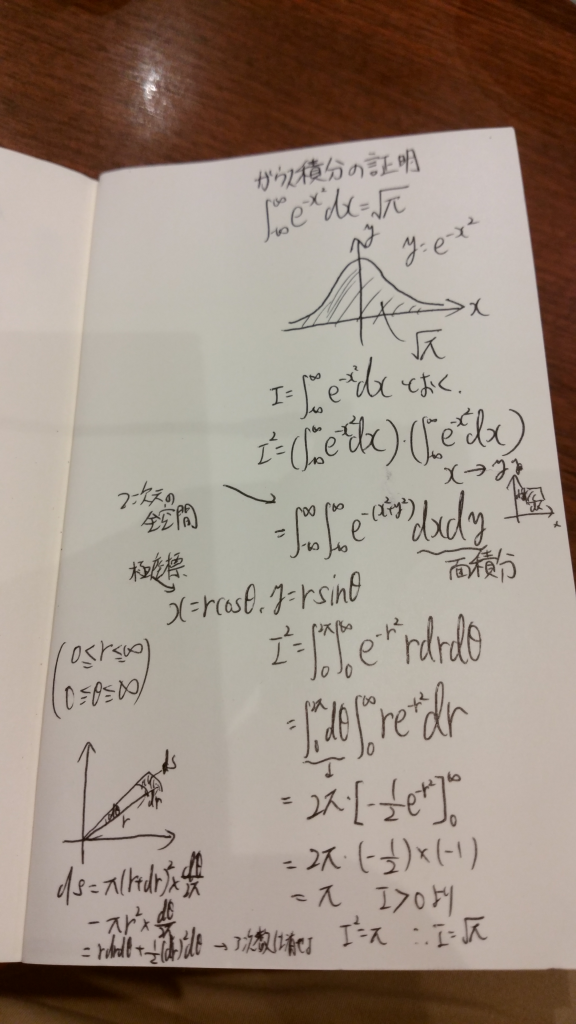 ガウス積分の証明
∫_{-∞}^{∞} e^{-x²}dx=√π
y
y=e^{-x²}
x
√π
I=∫_{-∞}^{∞} e^{-x²}dx とおく.
I²=(∫_{-∞}^{∞} e^{-x²}dx)・(∫_{-∞}^{∞} e^{-x²}dx)
x→y
2次元の
全空間
=∫_{-∞}^{∞}∫_{-∞}^{∞} e^{-(x²+y²)}dxdy
y
x
面積分
極座標
x=rcosθ, y=rsinθ
I²=∫_0^{2π}∫_0^{∞} e^{-r²}rdrdθ
(0≦r≦∞
0≦θ≦∞)
=∫_0^{2π}dθ∫_0^{∞}re^{-r²}dr
=2π・[-1/2 e^{-r²}]_0^{∞}
=2π・(-1/2)×(-1)
=π I>0より
I²=π ∴I=√π
ds
dr
dθ
r
ds=π(r+dr)²×dθ/2π
-πr²×dθ/2π
=rdrdθ+1/2(dr)²dθ →